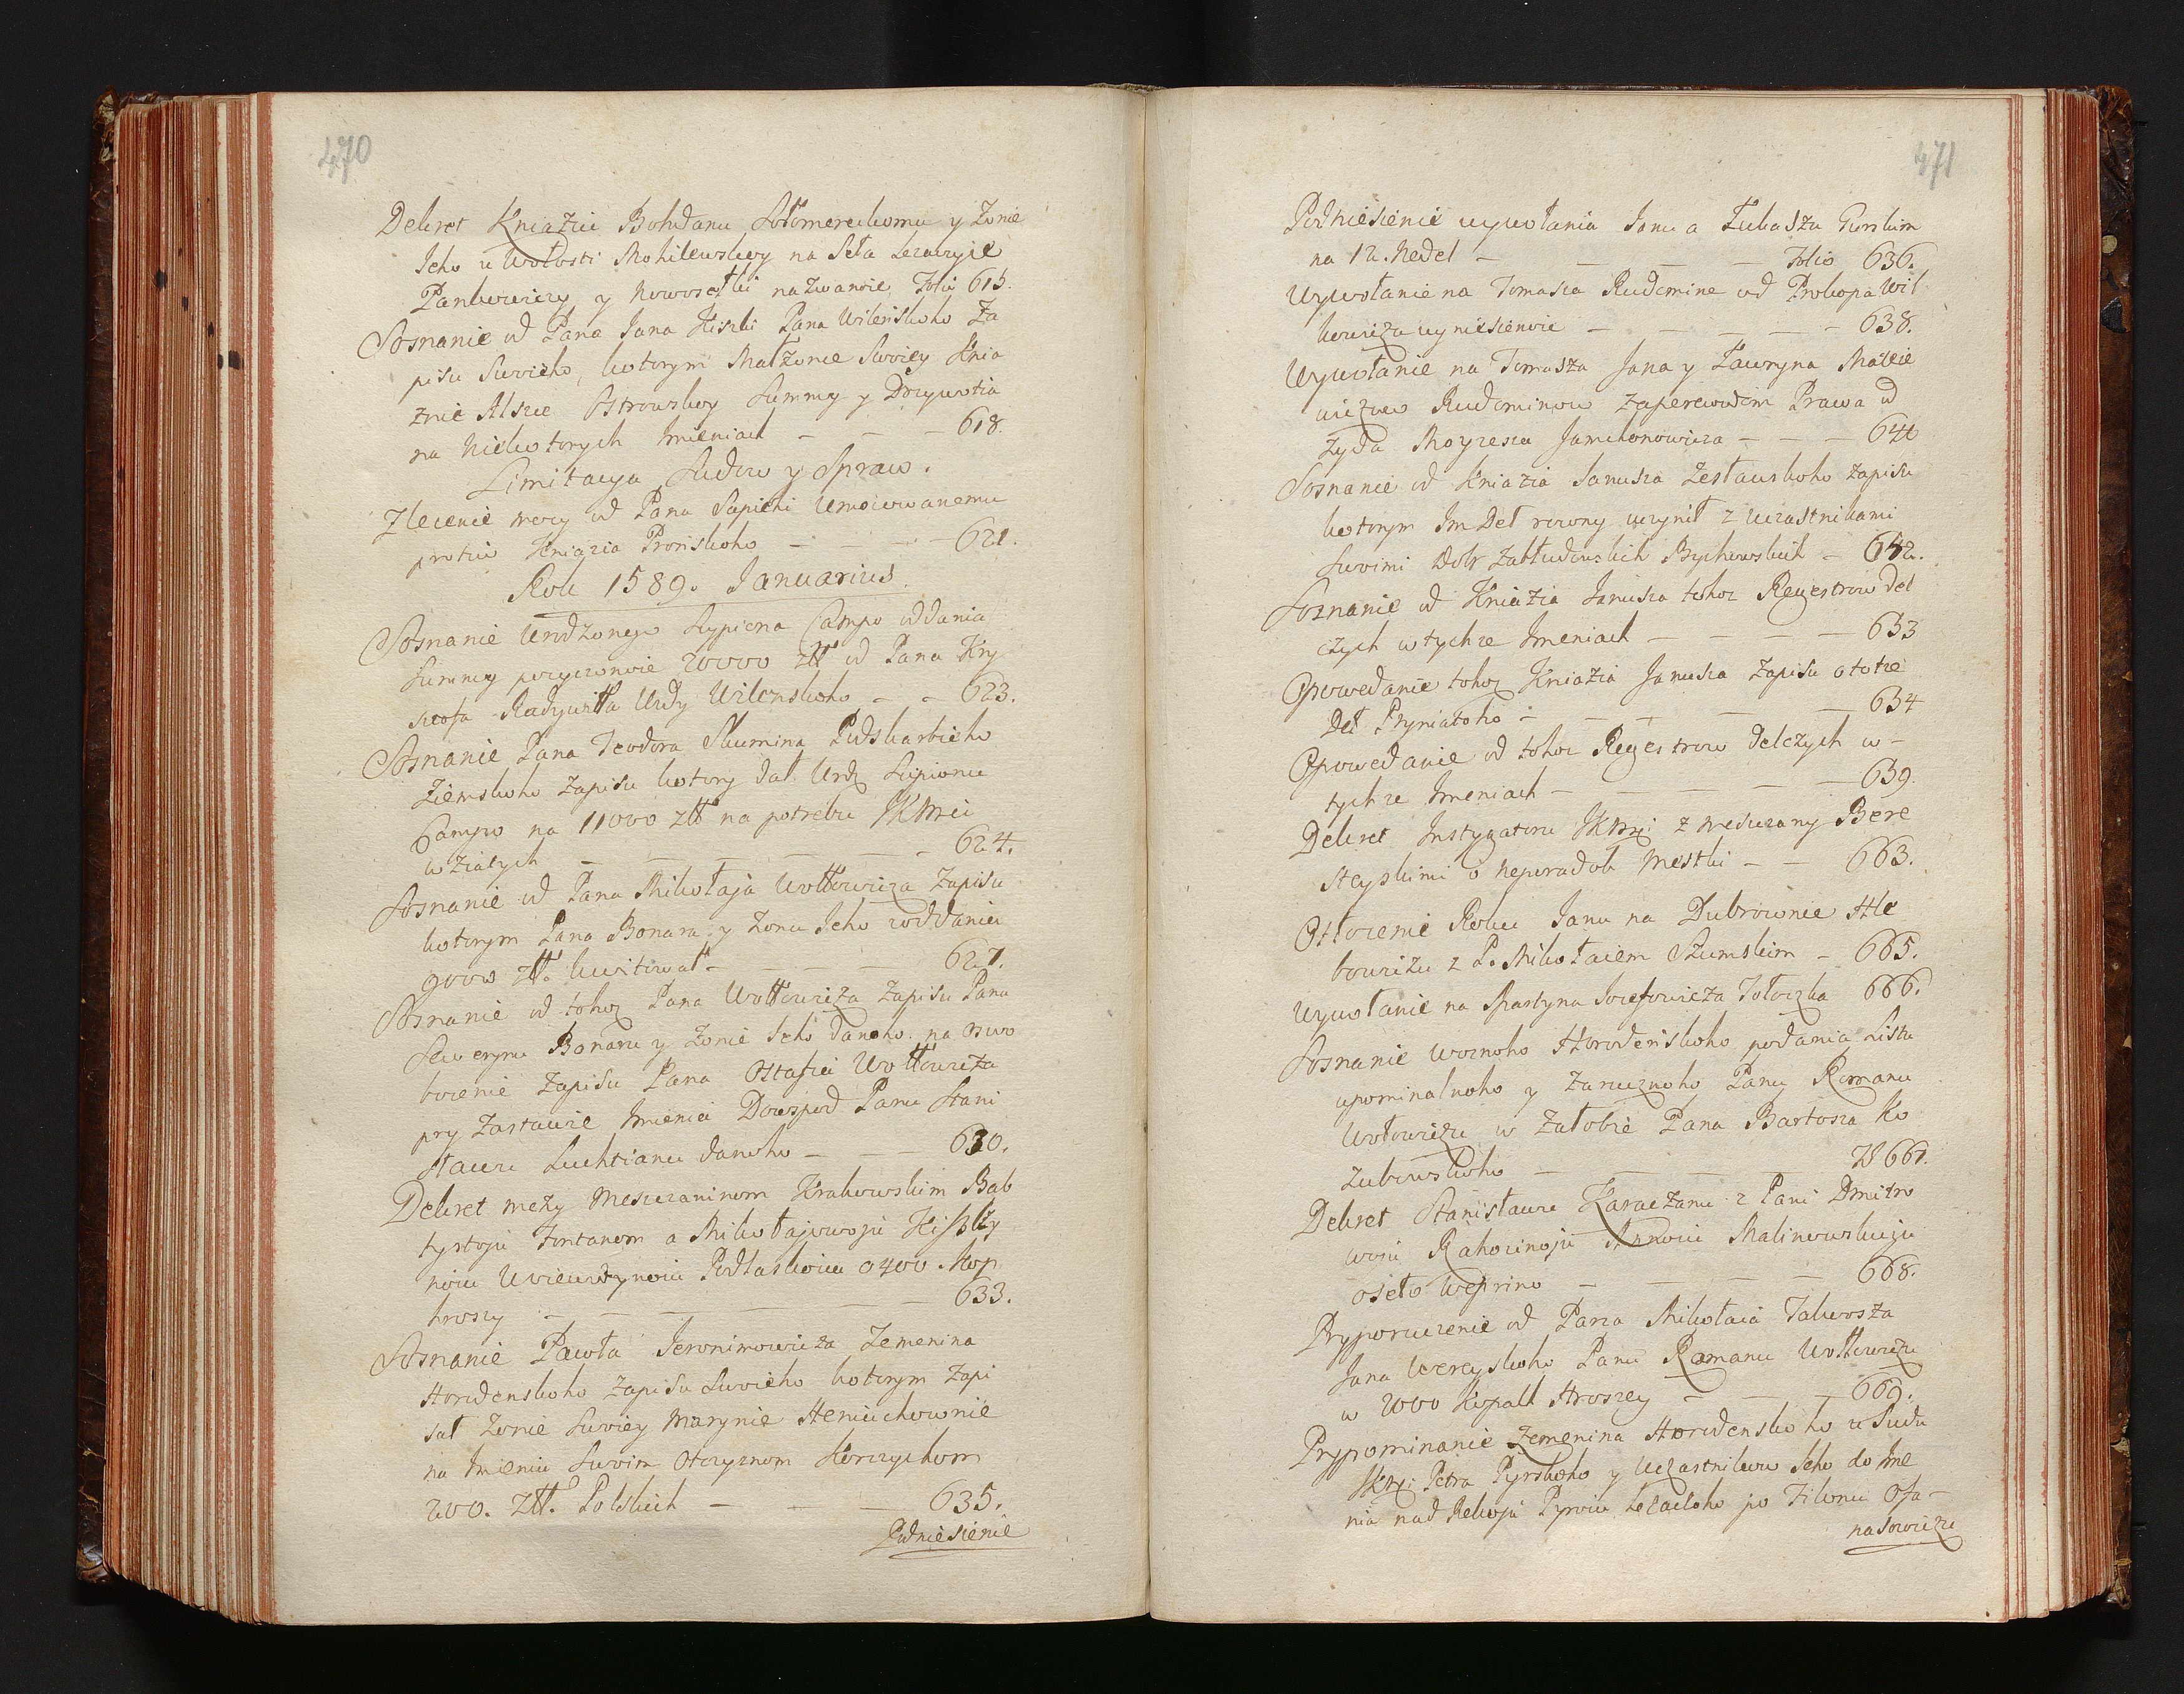 470
Dekret Kniaziu Bohdanu Sołomereckomu y Zonie
Jeho u Wołosti Mohilewskoy na Seła Lezauzyie
Pankowiczy y Nowosełki nazwanie Folio 615.
Sosnanie od Pana Jana Kiszki Pana Wilenskoho Za
pisu Swoieho, kotorym Małzonce Swoiey Knia
znie Alszce Ostrowskoy Summy y Dozywotia
na Niekotorych Imieniach - - - 618.
Limitacya Sudow y Spraw.
Zlecenie mocy od Pana Sapiehi Umocowanemu
protiw Kniazia Pronskoho - - - 621.
Rok 1589. Januarius.
Sosnanie Urodzonego Scypiona Campo oddania
Summy pozyczonoie 20000 złł od Pana Kry
sztofa Radziwiłła Wdy Wilenskoho - - 623.
Sosnanie Pana Teodora Skumina Podskarbieho
Ziemskoho Zapisu kotory dał Urdz Scipionu
Campo na 11000 złł na potrebu JKMci
wziatych - - - - - 624.
Sosnanie od Pana Mikołaja Wołłowicza Zapisu
kotorym Pana Bonara y Zonu Jeho z oddania
9000 złł. kwitował - - - - 627.
Sosnanie od tohoz Pana Wołłowicza Zapisu Panu
Seweryna Bonaru y Zonie Jeho danoho na oswo
bozenie Zapisu Pana Ostafia Wołłowicza
pry Zastawie Imienia Dowspud Panu Stani
sławu Luchtianu danoho - - - 630.
Dekret mezy Meszczaninom Krakowskim Bab
tystoju Fontanom a Mikołajowoju Kiszczy
noiu Woiewodzynoiu Podlaskoiu o 400. kop
hroszy - - - - - 633.
Sosnanie Pawła Jeronimowicza Zemenina
Horodenskoho Zapisu Swoieho kotorym Zapi
sał Zonie Swoiey Marynie Heniuchownie
na Imieniu Swoim Otczyznom Skorczychom
200. Złł. Polskich - - - 635.
Podniesienie
471
Podniesienie wywołania Janu a Łukaszu Gurskim
na 12. Nedel - - - - Folio 636.
Wywołanie na Tomasza Rudomine od Prokopa Wił
kowicza wyniesienoie - - - - - 638.
Wywołanie na Tomasza Jana y Ławryna Maccie
wiczow Rudominow za perewodom Prawa od
Zyda Moyzesza Jamchonowicza - - - 640
Sosnanie od Kniazia Janusza Zesławskoho Zapisu
kotorym Im Deł rowny uczynił z Uczastnikami
Swoimi Dobr Zabłudowskich Bychowskich - 642.
Sosnanie od Kniazia Janusza tohoz Regestrow Del
czych w tych ze Imeniach - - - - 653
Opowedanie tohoz Kniazia Janusza Zapisu o totze
Deł Pryniatoho - - - - - 654
Opowedanie od tohoz Regestrow Delczych w -
tych ze Imeniach - - - - - 659.
Dekret Instygatoru JKMci z Mesczany Bere
steyskimi o neporadok Mestki - - 663.
Ottozenie Roku Janu na Dubrownie Hle
bowiczu z P. Mikołaiem Szumskim - 665.
Wywołanie na Martyna Jozefowicza Tołoczka 666.
Sosnanie Woznoho Horodenskoho podania Listu
upominalnoho y Zarucznoho Panu Romanu
Wołowiczu w Załobie Pana Bartosza Ko
zubowskoho - - - - 667.
Dekret Stanisławu Karaczanu z Pani Dmitro
woju Rahozinoju Annoiu Malinowskoju
o Seło Weprino - - - - 668.
Pryporuczenie od Pana Mikołaia Talwosza
Jana Wereyskoho Panu Romanu Wołłowiczu
w 2000 Kopach Hroszey - - - 669.
Prypominanie Zemenina Horodenskoho u Sudu
JKMci Petra Pyrskoho y Uczastnikow Jeho do Ime
nia nad Rekoju Pyroiu Lezacoho po Filonu Ofa-
nasowiczu